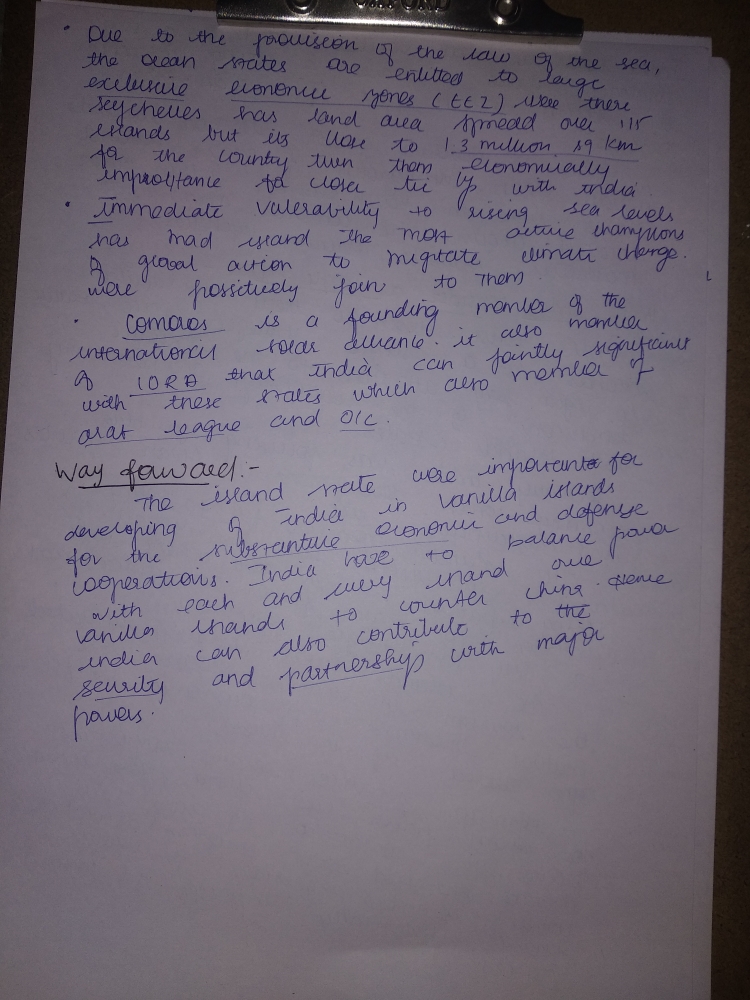 OXFORD
• Due to the provision of the law of the sea,
the ocean states are entitled to large
exclusive economic zones (EEZ) were there
seychelles has land area spread over 115
islands but its close to 1.3 million sq km
for the country turn them economically
importance for closer tie up with india
• Immediate vulerability to rising sea levels
has mad island the most active champions
of global action to migitate climate change.
were possitively join to them.
• Comoros is a founding member of the
international solar alliance. it also member
of IORA that india can jointly significant
with these states which also member of
arab league and OIC.
Way forward:-
The island state were important for
developing of india in vanilla islands
for the substantive economic and defense
cooperations. India have to balance power
with each and every island one
vanilla islands to counter china. Hence
india can also contribute to the
seurity and partnership with major
powers.